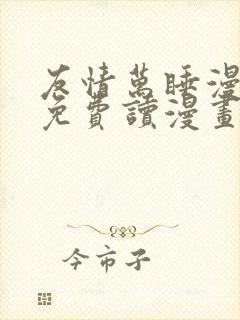 友情萬睡漫
免費讀漫畫
今市子